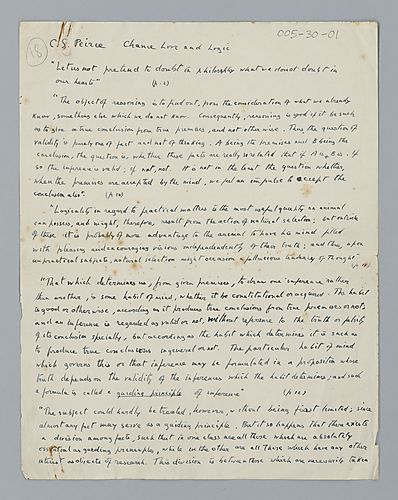 005-30-01
18
C.S. Peirce Chance Love and Logic
"Let us not pretend to doubt in philosophy what we do not doubt in
our hearts" (p.2)
"The object of reasoning is to find out, from the consideration of what we already
know, something else which we do not know. Consequently, reasoning is good if it be such
as to give a true conclusion from true premises, and not otherwise. Thus the question of
validity is purely one of fact and not of thinking. A being the premises and B being the
conclusion, the question is, whether these facts are really so related that if A is, B is. If
so the inference is valid; if not, not. It is not in the least the question whether,
when the premises are accepted by the mind, we feel an impulse to accept the
conclusion also"
"Logicality in regard to practical matters is the most useful quality an animal
can possess, and might, therefore, result from the action of natural selection; but outside
of these it is probably of more advantage to the animal to have his mind filled
with pleasing and encouraging visions independently of their truth; and thus, upon
unpractical subjects, natural selection might occasion a fallacious tendency of thought"
"That which determines us, from given premises, to draw one inference rather
than another, is some habit of mind, whether it be constitutional or acquired. The habit
is good or otherwise, according as it produce true conclusions from true premises or not;
and an inference is regarded as valid or not, without reference to the truth or falsity
of its conclusion specially, but according as the habit which determines it is such as
to produce true conclusions in general or not. The particular habit of mind
which governs this or that inference may be formulated in a proposition whose
truth depends on the validity of the inferences which the habit determines; and such
a formula is called a guiding principle of inference"
"The subject could hardly be treated, however, without being first limited; since
almost any fact may serve as a guiding principle. But it so happens that there exists
a division among facts, such that in one class are all those which are absolutely
essential as guiding principles, while in the other are all those which have any other
interest as objects of research. This division is between those which are necessarily taken